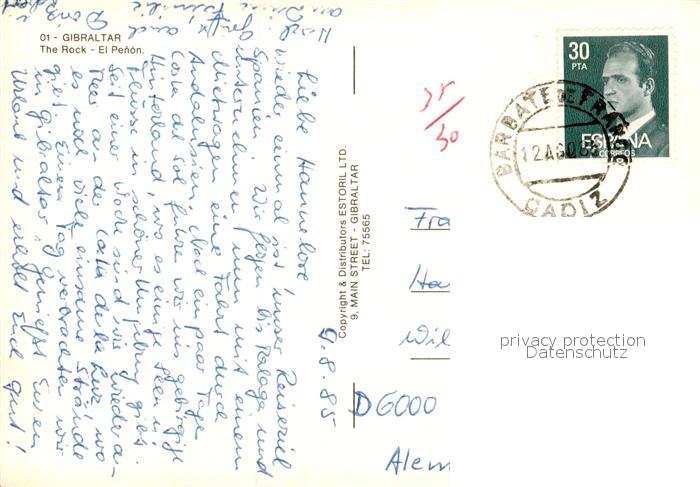 01 - GIBRALTAR
The Rock - El Peñón.
9.8.85
Liebe Hannelore,
wieder einmal ist unser Reiseziel
Spanien. Wir flogen bis Malaga und
unternehmen nun mit einem
Mietwagen eine Fahrt durch
Andalusien. Nach ein paar Tage
Costa del Sol fuhren wir ins gebirgige
Hinterland, wo es einige Seen u.
Flüsse in schöner Umgebung gibt.
Seit einer Woche sind wir wieder am
Meer an der Costa de la Luz, wo
es noch viele einsame Strände
gibt. Einen Tag verbrachten wir
in Gibraltar. Genießt Euren
Urlaub und erholt Euch gut!
Copyright & Distributors ESTORIL LTD.
9, MAIN STREET - GIBRALTAR
TEL: 75565
30
PTA
ESPAÑA
CORREOS
BARBATE DE FRANCO
12 AGO 85
CADIZ
35/30
Fra
Ha
Wil
D 6000
Alem
privacy protection
Datenschutz